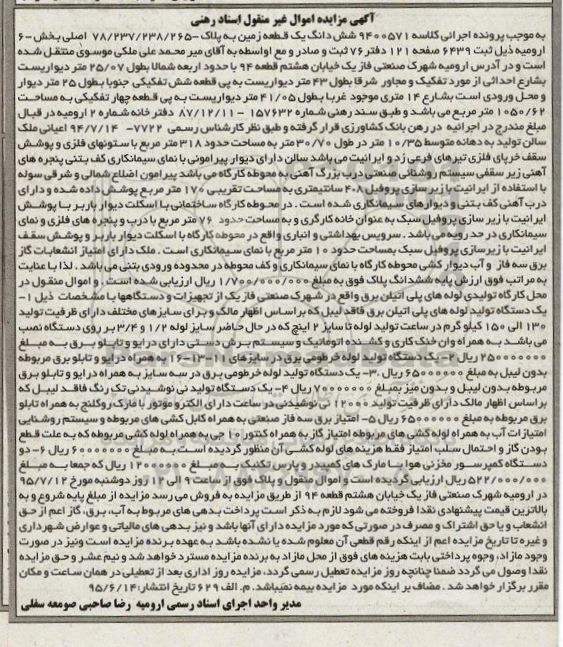 آگهی مزایده اموال غیر منقول اسناد رهنی
به موجب پرونده اجرائی کلاسه ۹۴۰۰۵۷۱ شش دانگ یک قطعه زمین به پلاک ۷۸/۲۳۷/۲۳۸/۲۶۵- اصلی بخش ۶-
ارومیه ذیل ثبت ۶۴۳۹ صفحه ۱۲۱ دفتر ۷۶ ثبت و صادر و مع اواسطه به آقای میر محمد علی ملکی موسوی منتقل شده
است و در آدرس ارومیه شهرک صنعتی فاز یک خیابان هشتم قطعه ۹۴ با حدود اربعه شمالا بطول ۲۵/۰۷ متر دیواریست
بشارع احداثی از مورد تفکیک و مجاور شرقا بطول ۴۳ متر دیواریست به پی قطعه شش تفکیکی جنوبا بطول ۲۵ متر دیوار
و محل ورودی است بشارع ۱۴ متری موجود غربا بطول ۴۱/۰۵ متر دیواریست به پی قطعه چهار تفکیکی به مساحت
۱۰۵۰/۶۲ متر مربع می باشد و طبق سند رهنی شماره ۱۵۷۶۳۲ - ۸۷/۱۲/۱۱ دفتر خانه شماره ۲ ارومیه در قبال
مبلغ مندرج در اجرائیه در رهن بانک کشاورزی قرار گرفته و طبق نظر کارشناس رسمی ۷۷۲۲- ۹۴/۷/۱۴ اعیانی ملک
سالن تولید به دهانه متوسط ۱۰/۳۵ متر در طول ۳۰/۷۰ متر به مساحت حدود ۳۱۸ متر مربع با ستونهای فلزی و پوشش
سقف خرپای فلزی تیرهای فرعی زد و ایرانیت می باشد سالن دارای دیوار پیرامونی با نمای سیمانکاری کف بتنی پنجره های
آهنی زیر سقفی سیستم روشنائی صنعتی درب بزرگ آهنی به محوطه کارگاه می باشد پیرامون اضلاع شمالی و شرقی سوله
با استفاده از ایرانیت با زیر سازی پروفیل ۴۰۸ سانتیمتری به مساحت تقریبی ۱۷۰ متر مربع پوشش داده شده و دارای
درب آهنی کف بتنی و دیوارهای سیمانکاری شده است . در محوطه کارگاه ساختمانی با اسکلت دیوار باربر با پوشش
ایرانیت با زیر سازی پروفیل سبک به عنوان خانه کارگری و به مساحت حدود ۷۶ متر مربع با درب و پنجره های فلزی و نمای
سیمانکاری در حد رویه می باشد . سرویس بهداشتی و انباری واقع در محوطه کارگاه با اسکلت دیوار باربر و پوشش سقف
ایرانیت با زیرسازی پروفیل سبک بمساحت حدود ۱۰ متر مربع با نمای سیمانکاری است . ملک دارای امتیاز انشعابات گاز
برق سه فاز و آب دیوار کشی محوطه کارگاه با نمای سیمانکاری و کف محوطه در محدوده ورودی بتنی می باشد . لذا با عنایت
به مراتب فوق ارزش پایه ششدانگ پلاک فوق به مبلغ ۱/۷۰۰/۰۰۰/۰۰۰ ریال ارزیابی شده است . و اموال منقول در
محل کارگاه تولیدی لوله های پلی اتیلن برق واقع در شهرک صنعتی فاز یک از تجهیزات و دستگاهها با مشخصات ذیل ۱-
یک دستگاه تولید لوله های پلی اتیلن برق فاقد لیبل که بر اساس اظهار مالک و برای سایزهای مختلف دارای ظرفیت تولید
۱۳۰ الی ۱۵۰ کیلو گرم در ساعت تولید لوله تا سایز ۲ اینچ که در حال حاضر سایز لوله ۱/۲ و ۳/۴ بر روی دستگاه نصب
می باشد به همراه وان خنک کاری و کشنده اتوماتیک و سیستم برش دستی دارای درایو و تابلو برق به مبلغ
۲۵۰۰۰۰۰۰۰ ریال ۲- یک دستگاه تولید لوله خرطومی برق در سایزهای ۱۱-۱۳-۱۶ به همراه درایو و تابلو برق مربوطه
بدون لیبل به مبلغ ۶۵۰۰۰۰۰۰ ریال .۳- یک دستگاه تولید لوله خرطومی برق در سه سایز به همراه درایو و تابلو برق
مربوطه بدون لیبل و بدون میز بمبلغ ۷۰۰۰۰۰۰۰ ریال ۴- یک دستگاه تولید نی نوشیدنی تک رنگ فاقد لیبل که
بر اساس اظهار مالک دارای ظرفیت تولید ۱۲۰۰۰ نی نوشیدنی در ساعت دارای الکترو موتور با مارک روکلنج به همراه تابلو
برق مربوطه به مبلغ ۶۵۰۰۰۰۰۰ ریال ۵- امتیاز برق سه فاز صنعتی به همراه کابل کشی های مربوطه و سیستم روشنایی
امتیازات آب به همراه لوله کشی های مربوطه امتیاز گاز به همراه کنتور ۱۰ جی به همراه لوله کشی مربوطه که به علت قطع
بودن گاز و احتمال سلب امتیاز فقط هزینه های لوله کشی آن منظور گردیده است به مبلغ ۶۰۰۰۰۰۰۰ ریال ۶- دو
دستگاه کمپرسور مخزنی هوا با مارک های کمپیدر و پارس تکنیک به مبلغ ۱۲۰۰۰۰۰۰ ریال که جمعا به مبلغ
۵۲۲/۰۰۰/۰۰۰ ریال ارزیابی گردیده است و اموال منقول و پلاک فوق از ساعت ۹ الی ۱۲ روز دوشنبه مورخ ۹۵/۷/۱۲
در ارومیه شهرک صنعتی فاز یک خیابان هشتم قطعه ۹۴ از طریق مزایده به فروش می رسد مزایده از مبلغ پایه شروع و به
بالاترین قیمت پیشنهادی نقدا فروخته می شود لازم به ذکر است پرداخت بدهی های مربوط به آب، برق، گاز اعم از حق
انشعاب و یا حق اشتراک و مصرف در صورتی که مورد مزایده دارای آنها باشد و نیز بدهی های مالیاتی و عوارض شهرداری
و غیره تا تاریخ مزایده اعم از اینکه رقم قطعی آن معلوم شده یا نشده باشد به عهده برنده مزایده است ونیز در صورت
وجود مازاد، وجوه پرداختی بابت هزینه های فوق از محل مازاد به برنده مزایده مسترد خواهد شد و نیم عشر و حق مزایده
نقدا وصول می گردد ضمنا چنانچه روز مزایده تعطیل رسمی گردد، مزایده روز اداری بعد از تعطیلی در همان ساعت و مکان
مقرر برگزار خواهد شد . مضاف بر اینکه مورد مزایده بیمه نمیباشد. م. الف ۶۲۹ تاریخ انتشار: ۹۵/۶/۱۴
مدیر واحد اجرای اسناد رسمی ارومیه رضا صاحبی صومعه سفلی